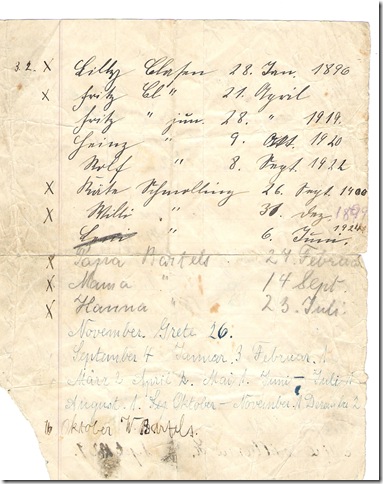 32. X Lilly Clasen 28. Jan. 1896
X Fritz Cl " 21. April
Fritz " jun. 28. " 1919.
Heinz " 9. Okt. 1920
Rolf " 8. Sept. 1922
X Käte Schmolling 26. Sept. 1900
X Willi " 31. Dez. 1899
X " 6. Juni. 1924
X Papa Bartels 27 Februar
X Mama " 14 Sept.
X Hanna " 23 Juli.
November Grete 26.
September 4 Januar 3 Februar 1
März 2 April 2. Mai 1. Juni – Juli
August 1. Oktober – November 1 Dezember 2
16 Oktober W. Bartels.